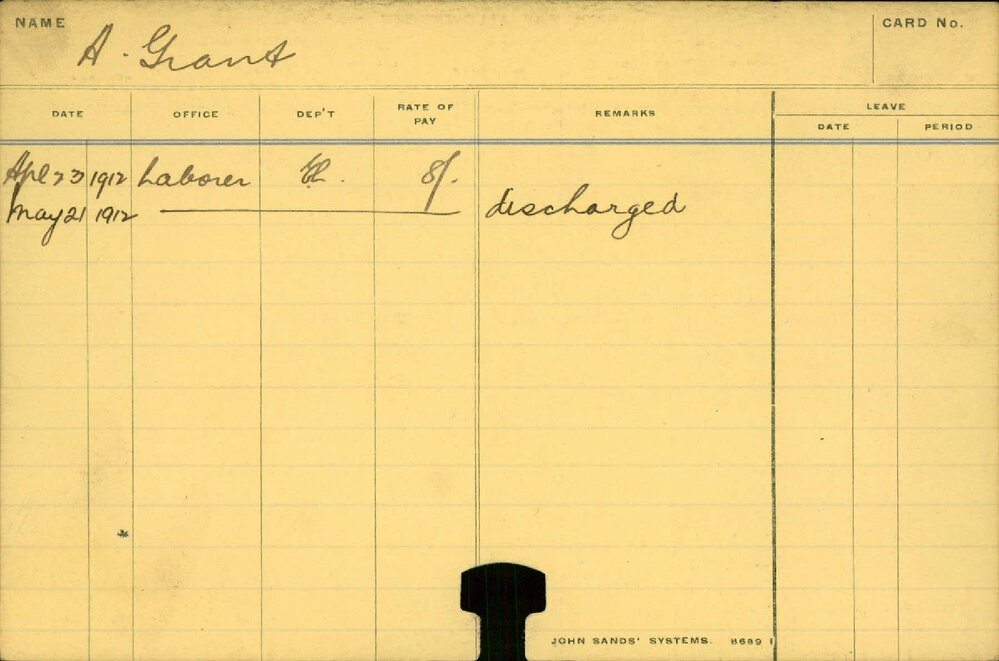 NAME A. Grant CARD No.
DATE OFFICE DEP'T RATE OF PAY REMARKS LEAVE
DATE PERIOD
Apl 23 1912 Laborer El. 8/-
May 21 1912 discharged
JOHN SANDS' SYSTEMS. 8689